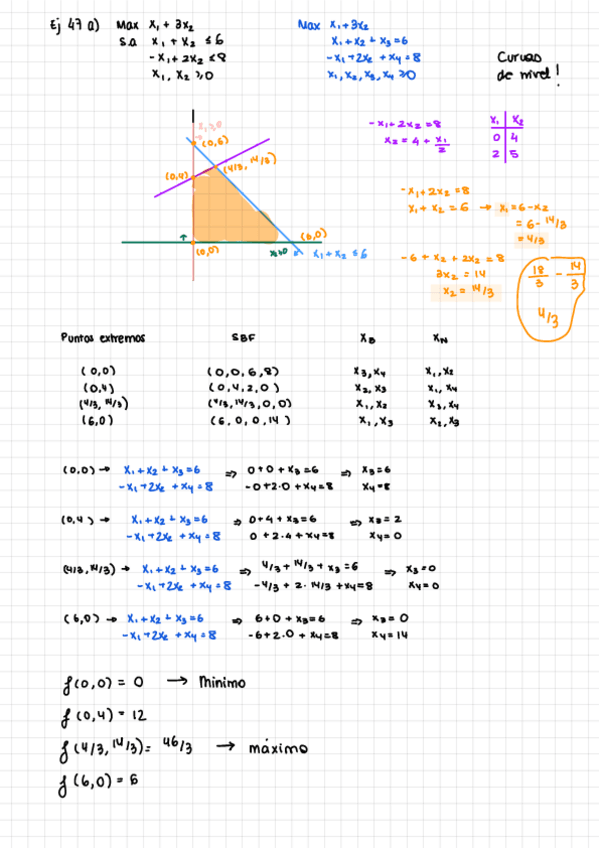 Ej 47 a) Max x₁ + 3x₂
s.a x₁ + x₂ ≤ 6
-x₁ + 2x₂ ≤ 8
x₁, x₂ ≥ 0
Max x₁ + 3x₂
x₁ + x₂ + x₃ = 6
-x₁ + 2x₂ + x₄ = 8
x₁, x₂, x₃, x₄ ≥ 0
Curvas
de nivel!
x₁ ≥ 0
(0,6)
(4/3, 14/3)
(0,4)
(0,0)
x₂ ≥ 0
(6,0)
x₁ + x₂ ≤ 6
-x₁ + 2x₂ = 8
x₂ = 4 + x₁/2
x₁ x₂
0 4
2 5
-x₁ + 2x₂ = 8
x₁ + x₂ = 6 → x₁ = 6 - x₂
= 6 - 14/3
= 4/3
-6 + x₂ + 2x₂ = 8
3x₂ = 14
x₂ = 14/3
18/3 - 14/3
4/3
Puntos extremos SBF x_B x_N
(0,0) (0,0,6,8) x₃, x₄ x₁, x₂
(0,4) (0,4,2,0) x₂, x₃ x₁, x₄
(4/3, 14/3) (4/3, 14/3, 0, 0) x₁, x₂ x₃, x₄
(6,0) (6,0,0,14) x₁, x₃ x₂, x₃
(0,0) → x₁ + x₂ + x₃ = 6 ⇒ 0 + 0 + x₃ = 6 ⇒ x₃ = 6
-x₁ + 2x₂ + x₄ = 8 -0 + 2·0 + x₄ = 8 x₄ = 8
(0,4) → x₁ + x₂ + x₃ = 6 ⇒ 0 + 4 + x₃ = 6 ⇒ x₃ = 2
-x₁ + 2x₂ + x₄ = 8 0 + 2·4 + x₄ = 8 x₄ = 0
(4/3, 14/3) → x₁ + x₂ + x₃ = 6 ⇒ 4/3 + 14/3 + x₃ = 6 ⇒ x₃ = 0
-x₁ + 2x₂ + x₄ = 8 -4/3 + 2·14/3 + x₄ = 8 x₄ = 0
(6,0) → x₁ + x₂ + x₃ = 6 ⇒ 6 + 0 + x₃ = 6 ⇒ x₃ = 0
-x₁ + 2x₂ + x₄ = 8 -6 + 2·0 + x₄ = 8 x₄ = 14
f(0,0) = 0 → Minimo
f(0,4) = 12
f(4/3, 14/3) = 46/3 → máximo
f(6,0) = 6